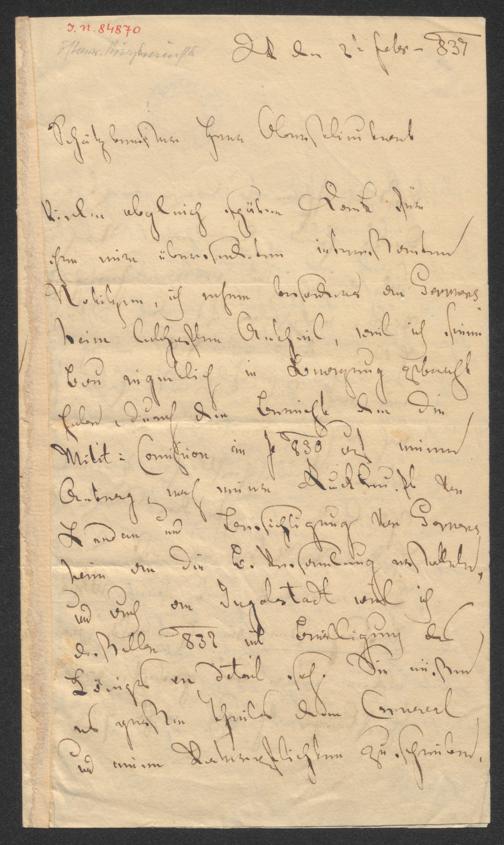 I.N. 84870
den 2t Febr. 837
Schätzbarster Herr Oberstlieutenant
Vielen obgleich späten Dank für
ihre mir übersendeten interessanten
Notizen, ich nehme besonders an Germers
heim lebhaften Antheil, weil ich seinen
Bau eigentlich in Anregung gebracht
habe, durch den Bericht den die
Milit: Comission im J 830 auf meinen
Antrag, nach meiner Rückkunft von
Landau und Besichtigung von Germers
heim an die B. Versammlung erstattete,
und auch an Ingolstadt weil ich
dasselbe 832 mit Bewilligung des
Königs en détail sah. Sie müssen
es großen Theils dem General
und meinen zu schreiben,